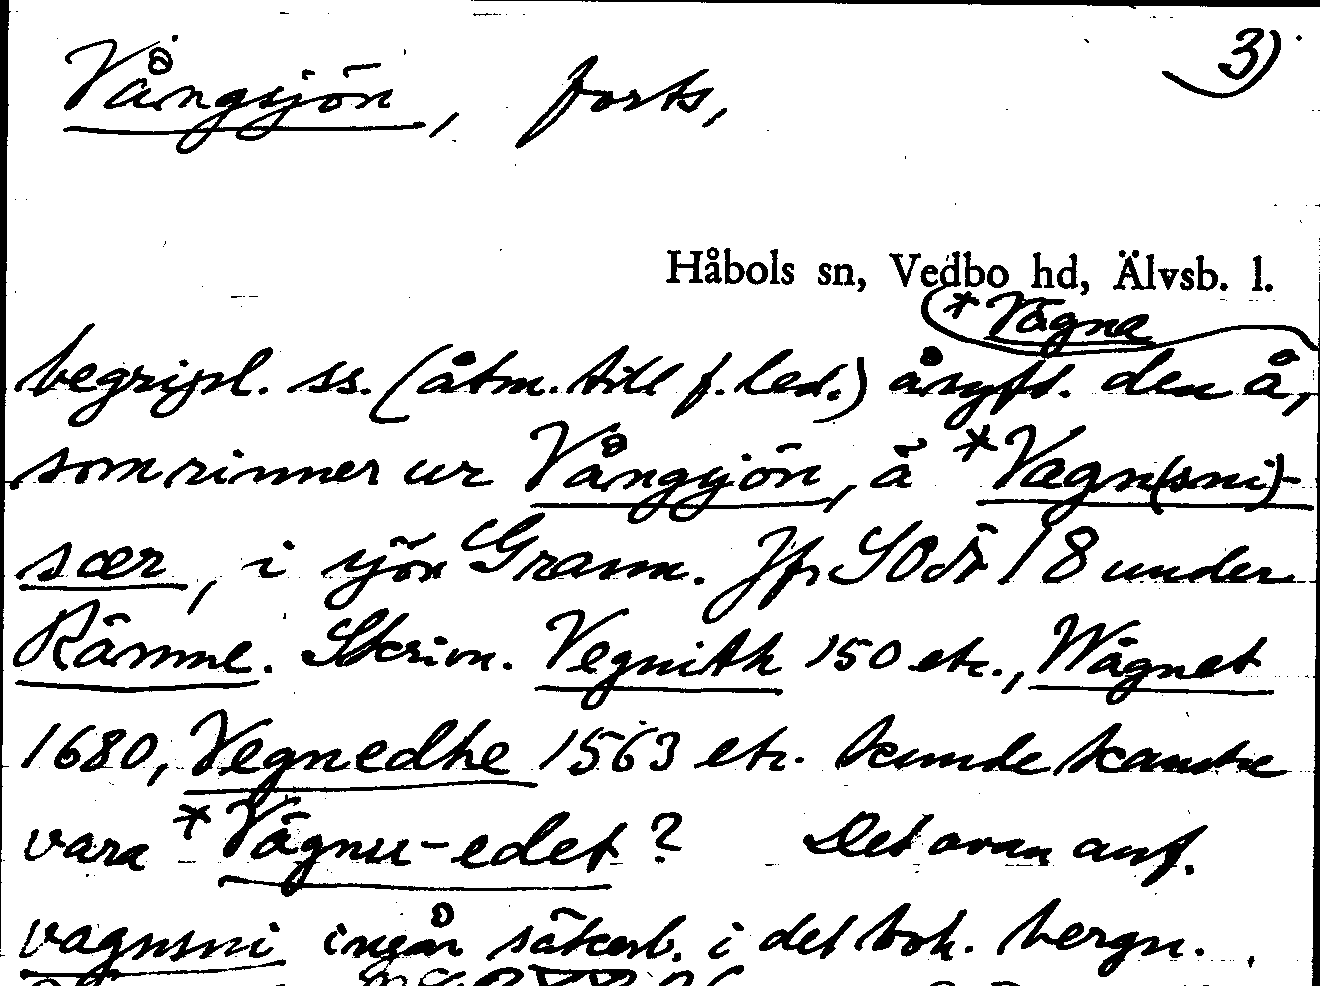 Vångsjön, forts,
3)
Håbols sn, Vedbo hd, Älvsb. l.
*Vägna
begripl. ss. (åtm. till f. led.) åsyft. den å,
som rinner ur Vångsjön, ä *Vægn(sni)-
sær, i sjön Grann. Jfr SOÄ 18 under
Rämne. Skrivn. Vegnith 150 etc., Wägnet
1680, Vegnedhe 1563 etc. kunde kanske
vara *Vägnu-edet? Det ovan anf.
vagnsni ingår säkerl. i det boh. bergn.